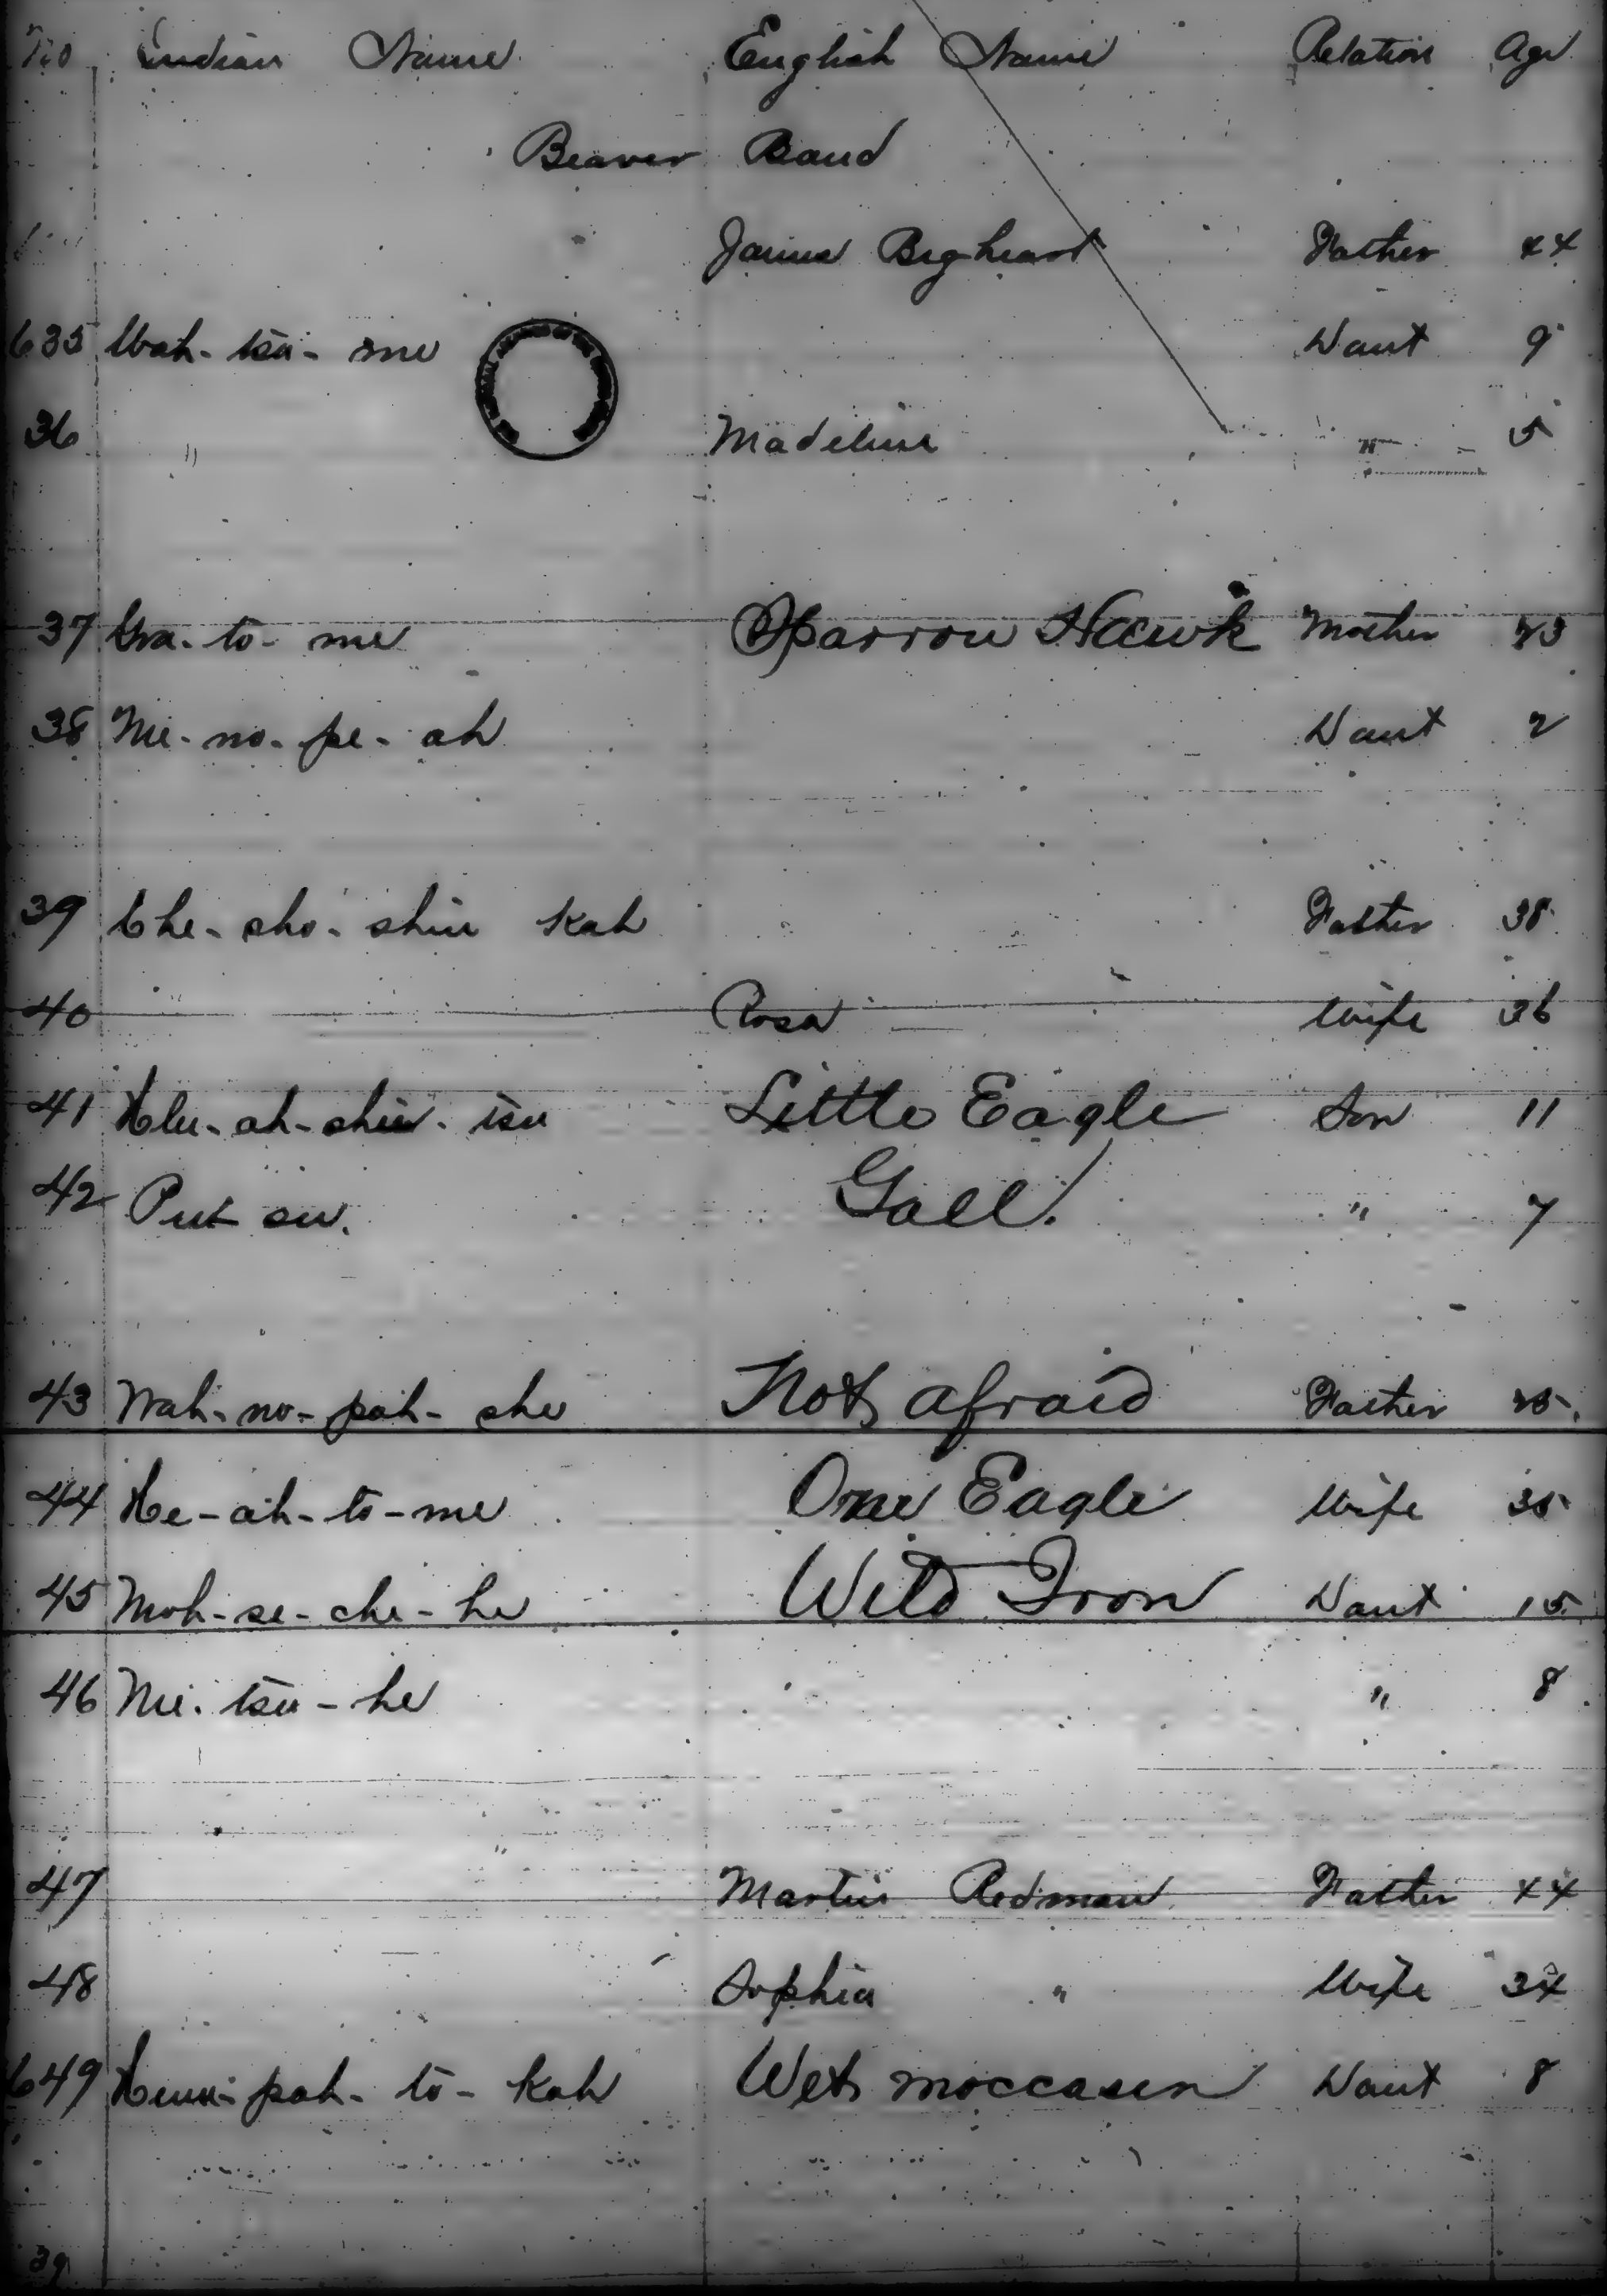 No Indian Name English Name Relation Age
Beaver Band
James Bigheart Father 44
635 Wah-tsa-me Daut 9
36 " Madeline " 5
37 Gra-to-me Sparrow Hawk Mother 23
38 Me-no-pe-ah Daut 2
39 Che-sho-shin kah Father 38
40 Rosa Wife 36
41 Hlu-ah-shu-tsa Little Eagle Son 11
42 Put su. Gall. " 7
43 Wah-no-pah-she Not afraid Father
44 He-ah-to-me One Eagle Wife 35
45 Moh-se-che-he Wild Iron Daut 15
46 Me-tsa-he " 8
47 Martin Redman Father 44
48 Sophia " Wife 34
649 pah-to-kah Wet moccasin Daut 8
39